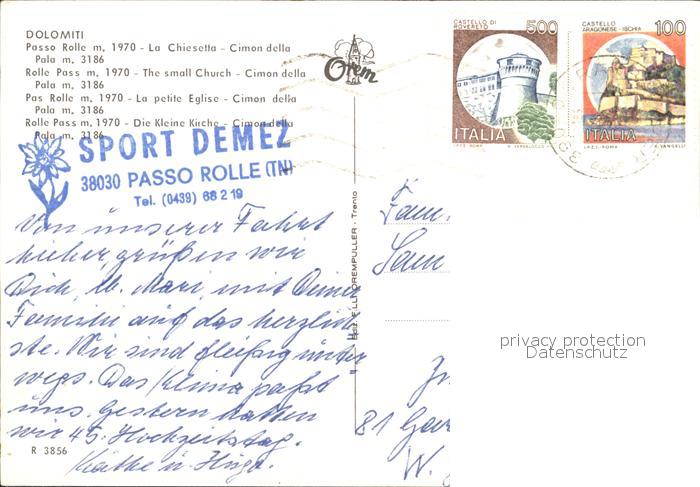 DOLOMITI
Passo Rolle m. 1970 - La Chiesetta - Cimon della
Pala m. 3186
Rolle Pass m. 1970 - The small Church - Cimon della
Pala m. 3186
Pas Rolle m. 1970 - La petite Eglise - Cimon della
Pala m. 3186
Rolle Pass m. 1970 - Die Kleine Kirche - Cimon della
Pala m. 3186
SPORT DEMEZ
38030 PASSO ROLLE (TN)
Tel. (0439) 68219
Von unserer Fahrt
hieher, grüßen wir
Dich, lb. Mari, mit Deiner
Familie auf das herzlich
ste. Wir sind fleißig unter
wegs. Das Klima paßt
uns. Gestern hatten
wir 45. Hochzeitstag.
Käthe u. Hugo.
R 3856
Orem
Ediz. F.LLI OREMPULLER - Trento
CASTELLO DI
ROVERETO
500
ITALIA
I.P.Z.S. ROMA
CASTELLO
ARAGONESE - ISCHIA
100
ITALIA
I.P.Z.S. ROMA
E. VANGELLI
Fam.
81
W.
privacy protection
Datenschutz